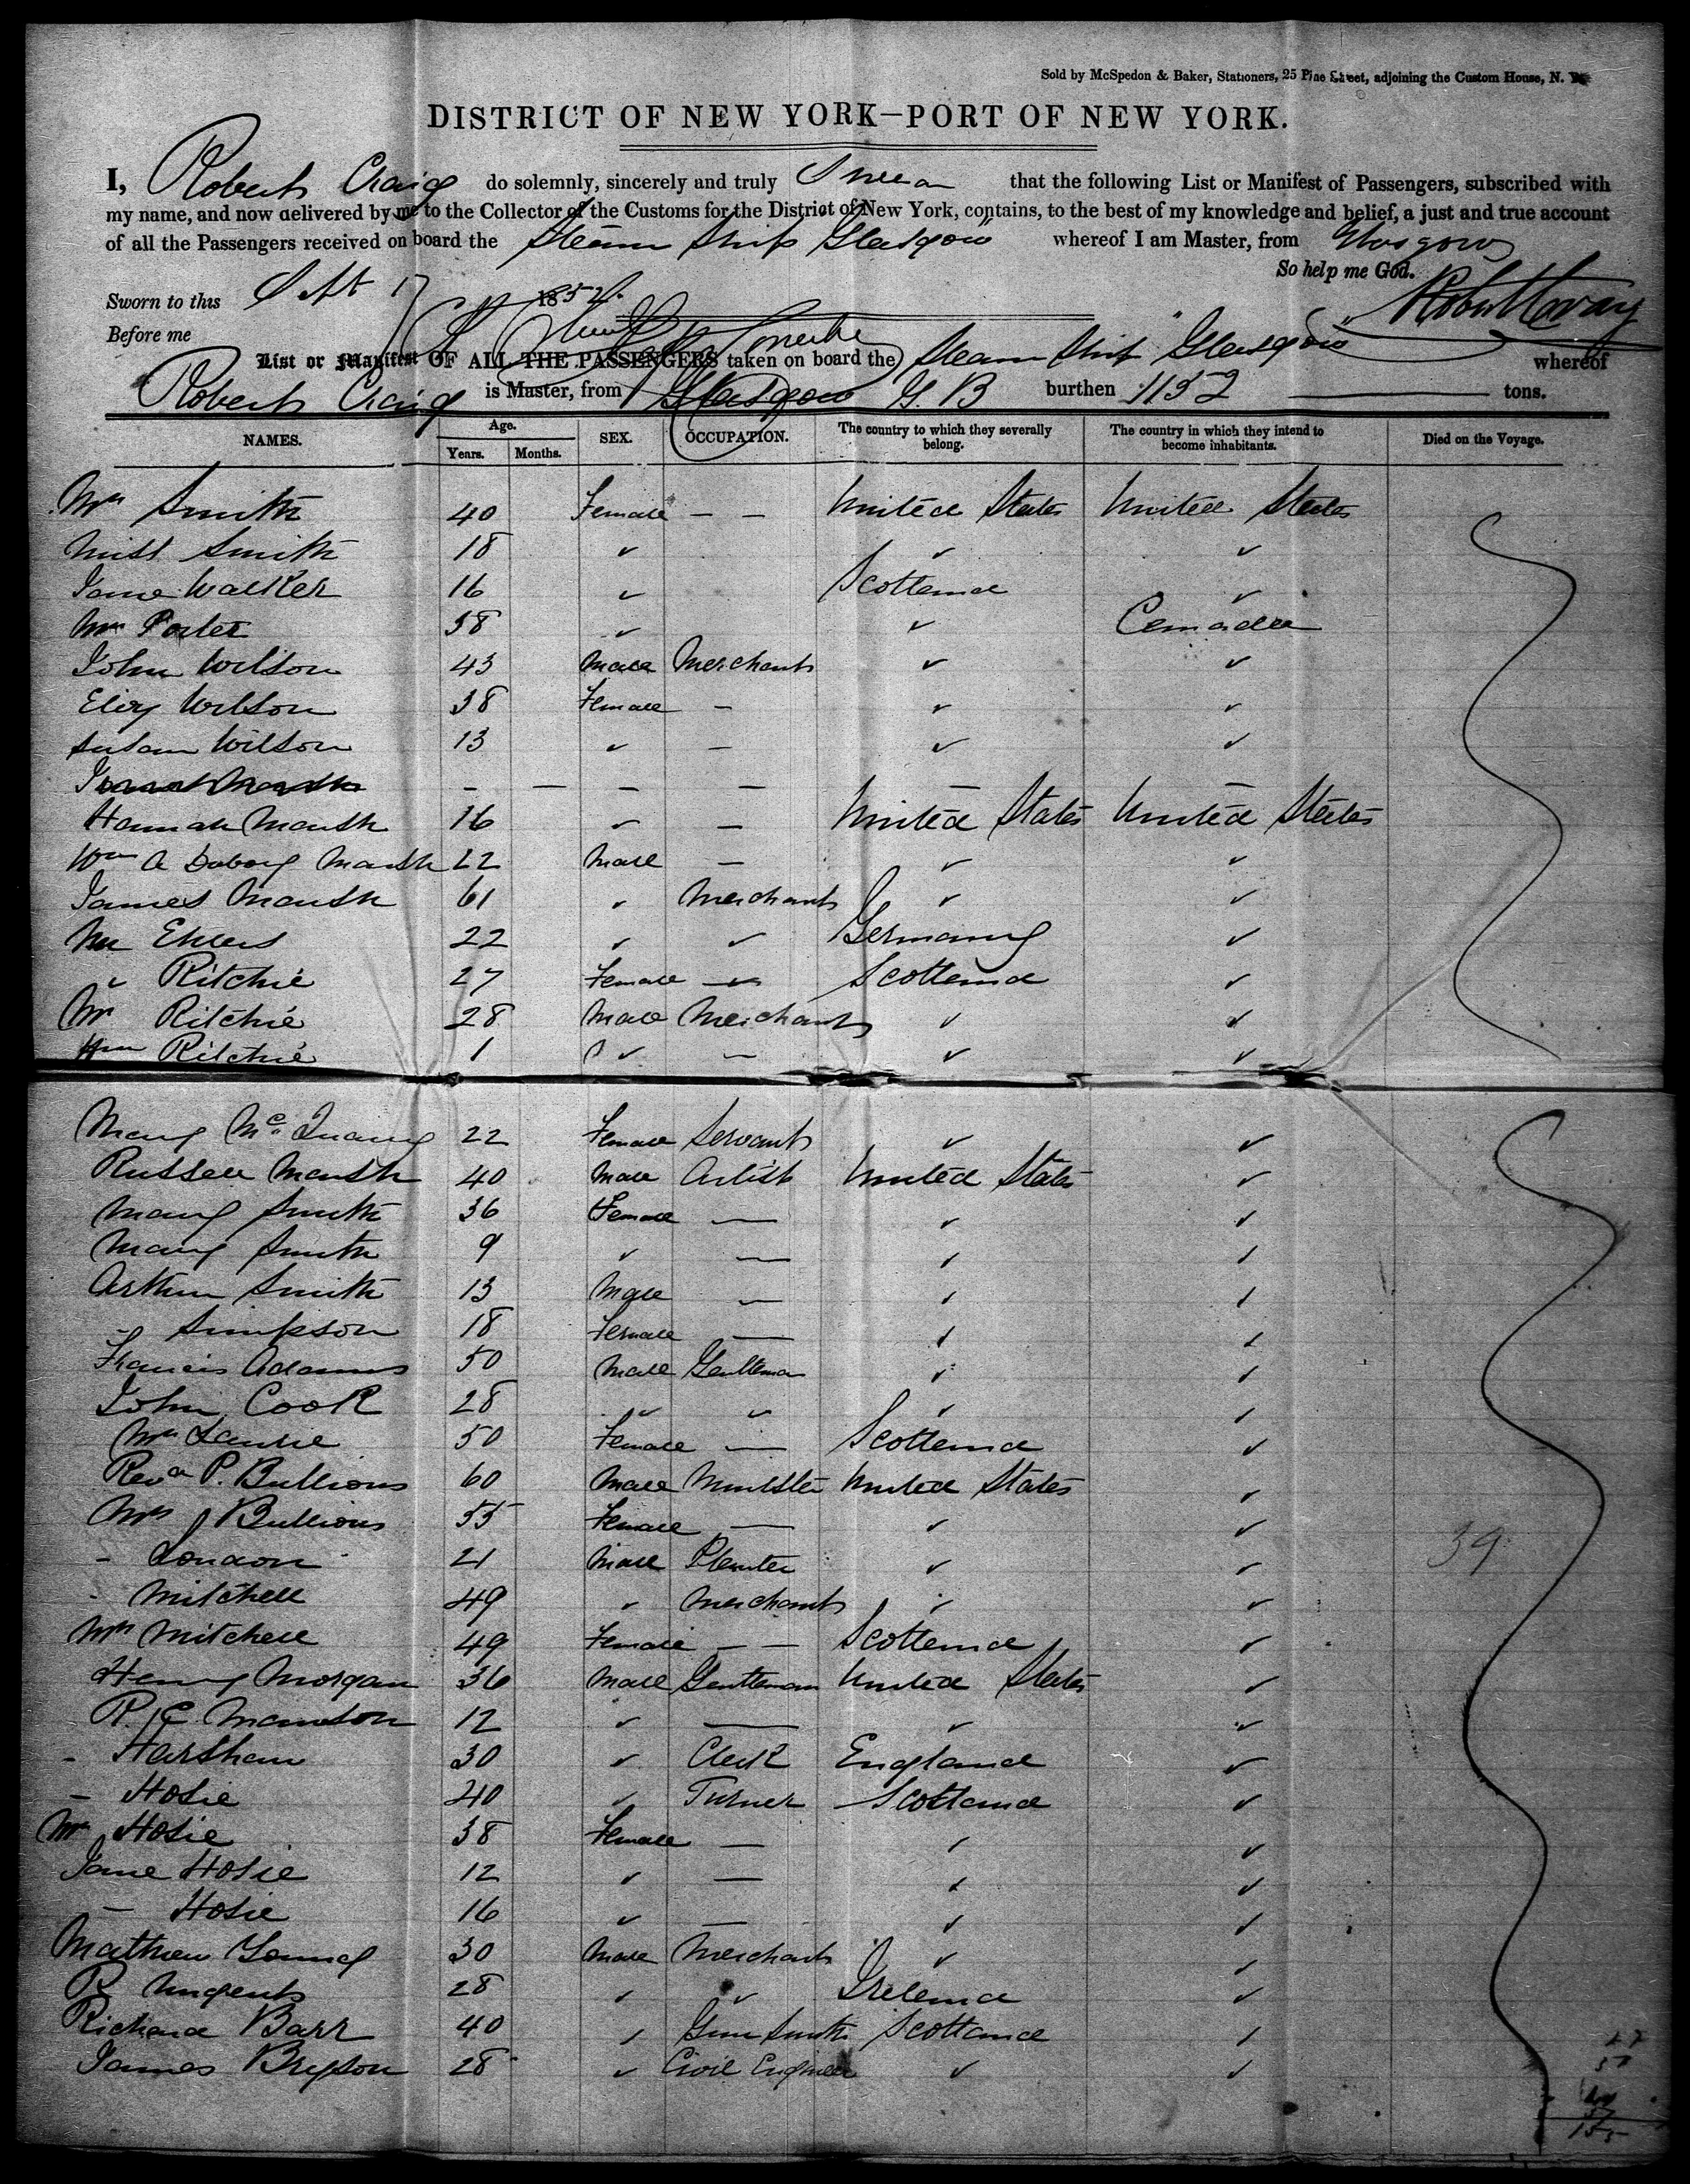 Sold by McSpedon & Baker, Stationers, 25 Pine Street, adjoining the Custom House, N. Y.
DISTRICT OF NEW YORK—PORT OF NEW YORK.
I, Robert Craig do solemnly, sincerely and truly Swear that the following List or Manifest of Passengers, subscribed with
my name, and now delivered by me to the Collector of the Customs for the District of New York, contains, to the best of my knowledge and belief, a just and true account
of all the Passengers received on board the Steam Ship Glasgow whereof I am Master, from Glasgow
So help me God.
Sworn to this Sept 17 185
Robert Craig
Before me
List or Manifest OF ALL THE PASSENGERS taken on board the Steam Ship "Glasgow" whereof
Robert Craig is Master, from Glasgow G. B burthen 1152 tons.
NAMES. Age. Years. Months. SEX. OCCUPATION. The country to which they severally belong. The country in which they intend to become inhabitants. Died on the Voyage.
Mrs Smith 40 Female — — United States United States
Miss Smith 18 ✓ ✓ ✓
Jane Walker 16 ✓ Scotland ✓
Mrs Porter 38 ✓ ✓ Canada
John Wilson 43 Male Merchant ✓ ✓
Eliz Wilson 38 Female — ✓ ✓
Susan Wilson 13 ✓ — ✓ ✓
— — — — — —
Hannah Marsh 16 ✓ — United States United States
Wm A Marsh 22 Male — ✓ ✓
James Marsh 61 ✓ Merchant ✓ ✓
Mr Ehlers 22 ✓ ✓ Germany ✓
✓ Ritchie 27 Female — Scotland ✓
Mr Ritchie 28 Male Merchant ✓ ✓
Wm Ritchie 1 ✓ — ✓ ✓
Mary Mc 22 Female Servant ✓ ✓
Russell Marsh 40 Male Artist United States ✓
Mary Smith 36 Female — ✓ ✓
Mary Smith 9 ✓ — ✓ ✓
Arthur Smith 13 Male — ✓ ✓
— Simpson 18 Female — ✓ ✓
Francis Adams 50 Male Gentleman ✓ ✓
John Cook 28 ✓ ✓ ✓ ✓
Mrs Laurie 50 Female — Scotland ✓
Revd P. Bullions 60 Male Minister United States ✓
Mrs J Bullions 55 Female — ✓ ✓
- London 21 Male Planter ✓ ✓
- Mitchell 49 ✓ Merchant ✓ ✓
Mrs Mitchell 49 Female — — Scotland ✓
Henry Morgan 36 Male Gentleman United States ✓
R. C Manson 12 ✓ — ✓ ✓
- Harshaw 30 ✓ Clerk England ✓
- Hosie 40 ✓ Turner Scotland ✓
Mrs Hosie 38 Female — ✓ ✓
Jane Hosie 12 ✓ — ✓ ✓
— Hosie 16 ✓ — ✓ ✓
Mathew Young 30 Male Merchant ✓ ✓
R Nugent 28 ✓ ✓ Ireland ✓
Richard Barr 40 ✓ Gun Smith Scotland ✓
James Bryson 28 ✓ Civil Engineer ✓ ✓
39